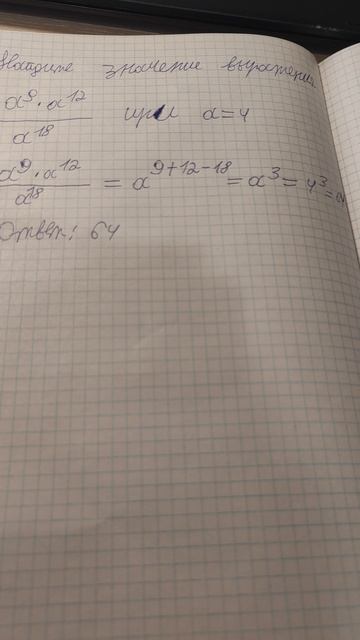 Найдите значение выражения.
a⁹·a¹²
/a¹⁸ при a=4
a⁹·a¹²/a¹⁸ = a⁹⁺¹²⁻¹⁸ = a³ = 4³ =
Ответ: 64